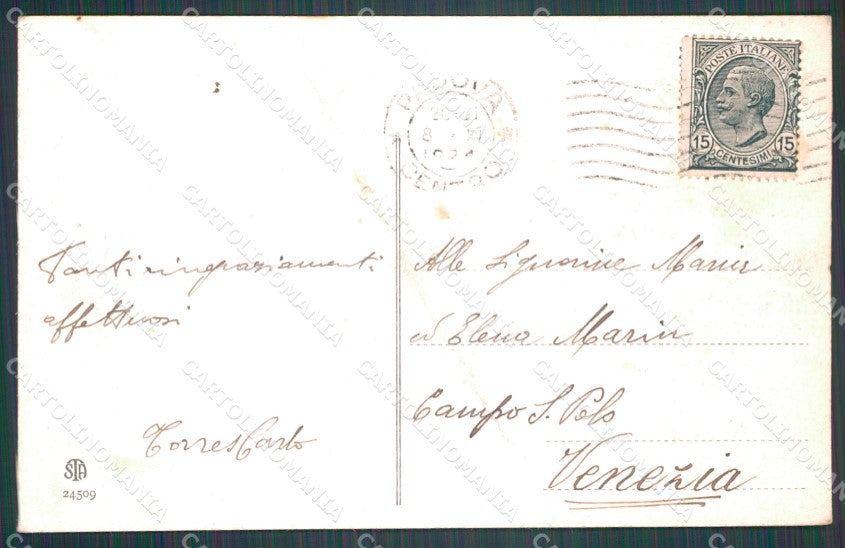 PADOVA
8
CENTRO
POSTE ITALIANE
15 CENTESIMI 15
Tanti ringraziamenti
affettuosi
Torres Carlo
Alle Signorine Maria
ed Elena Marin
Campo S. Polo
Venezia
STA
24509
CARTOLINOMANIA